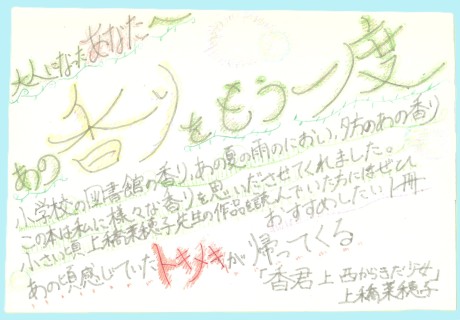 大人になったあなたへ
あの香りをもう一度
小学校の図書館の香り,あの夏の雨のにおい,夕方のあの香り
この本は私に様々な香りを思いださせてくれました。
小さい頃上橋菜穂子先生の作品を読んでいた方にはぜひ
おすすめしたい1冊
あの頃感じていたトキメキが帰ってくる
「香君上西から来た少女」
上橋菜穂子